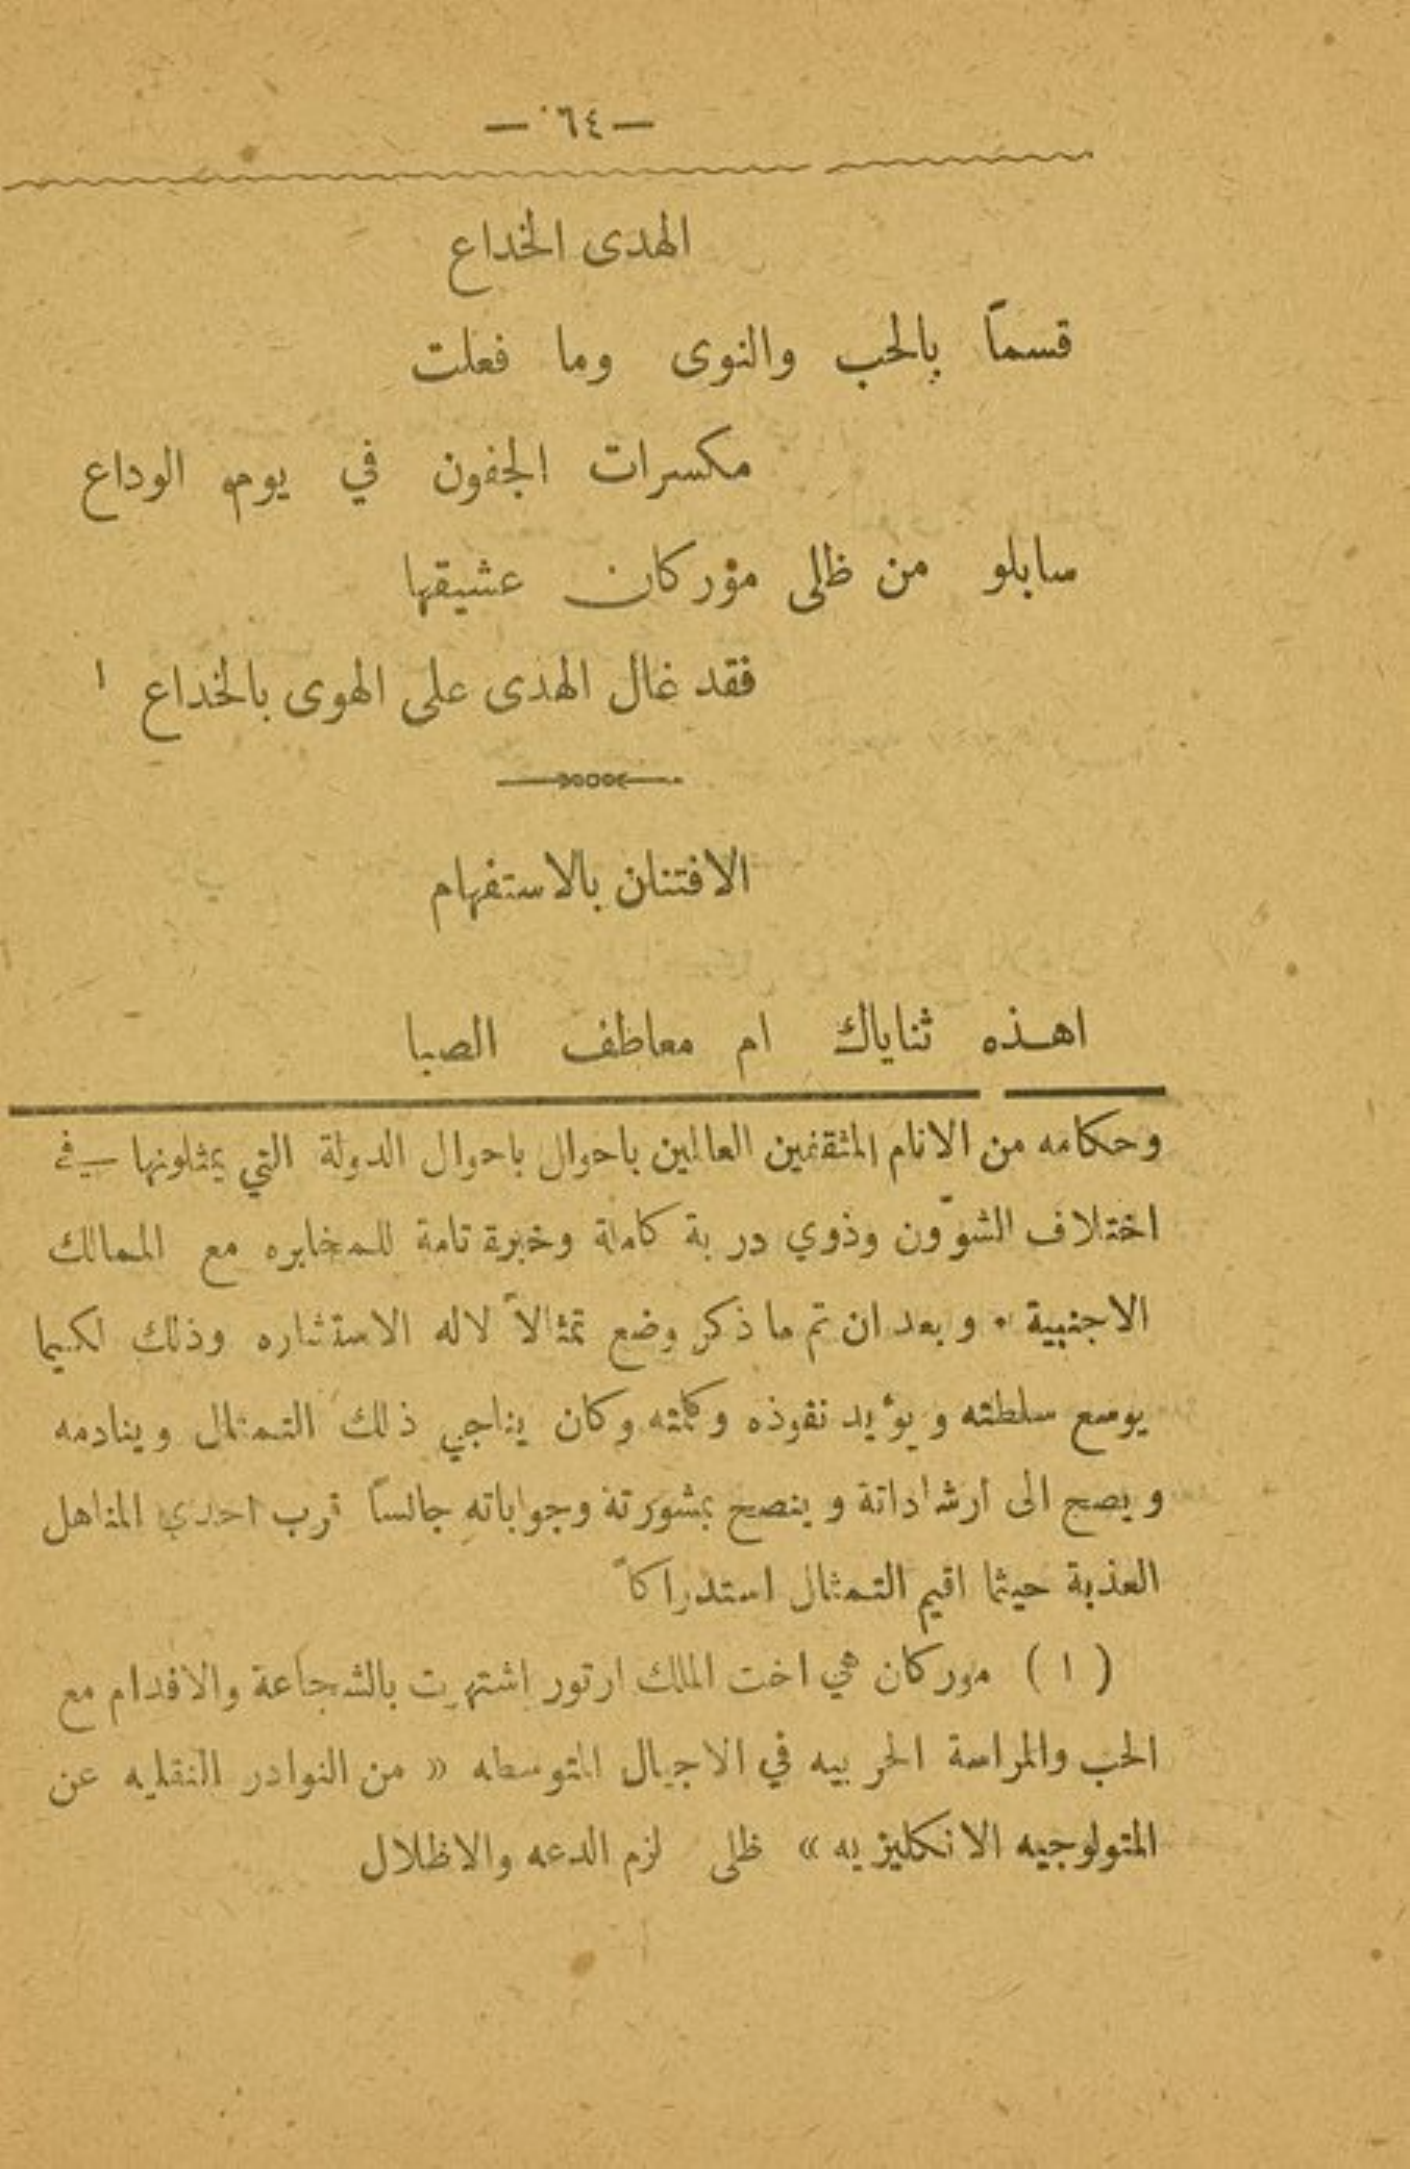 — ٦٤ —
الهدى الخداع
قسماً بالحب والنوى وما فعلت
مكسرات الجفون في يوم الوداع
سابلو من ظلى مؤركان عشيقها
فقد غال الهدى على الهوى بالخداع ١
الافتنان بالاستفهام
اهذه ثناياك ام معاظف الصبا
وحكامه من الانام المثقفين العالمين باحوال باحوال الدولة التي يمثلونها في
اختلاف الشوّون وذوي دربة كاملة وخبرة تامة للمخابره مع الممالك
الاجنبية ٠ وبعد ان تم ما ذكر وضع تمثالاً لاله الاستثاره وذلك لكيما
يوسع سلطته ويؤيد نفوذه وكلمته وكان يناجي ذلك التمثال وينادمه
ويصح الى ارشاداتة وينصح بمشورتة وجواباته جالساً قرب احدي المناهل
العذبة حيثما اقيم التمثال استدراكاً
( ١ ) موركان هي اخت الملك ارتور اشتهرت بالشجاعة والاقدام مع
الحب والمراسة الحربيه في الاجيال المتوسطه « من النوادر النقليه عن
المتولوجيه الانكليزيه » ظلى لزم الدعه والاظلال